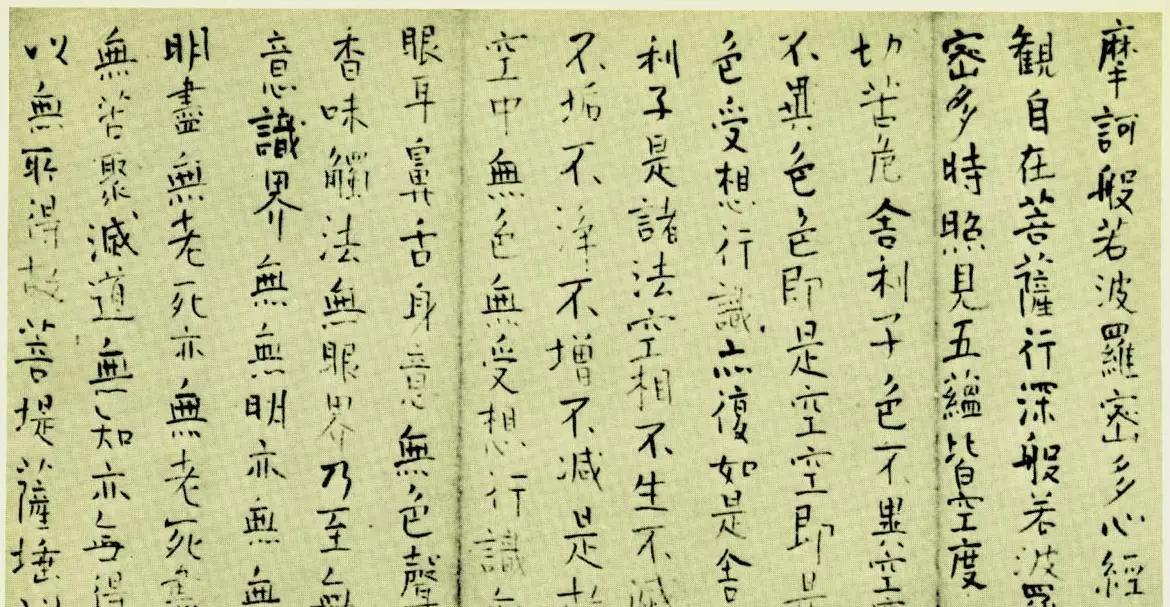 摩訶般若波羅密多心經
観自在菩薩行深般若波羅
密多時照見五蘊皆空度
切苦危舍利子色不異空
不異色色即是空空即是
色受想行識亦復如是舍
利子是諸法空相不生不滅
不垢不浄不增不減是故
空中無色無受想行識
眼耳鼻舌身意無色聲
香味觸法無眼界乃至無
意識界無無明亦無無
明盡無老死亦無老死盡
無苦聚滅道無知亦無得
以無所得故菩提薩埵